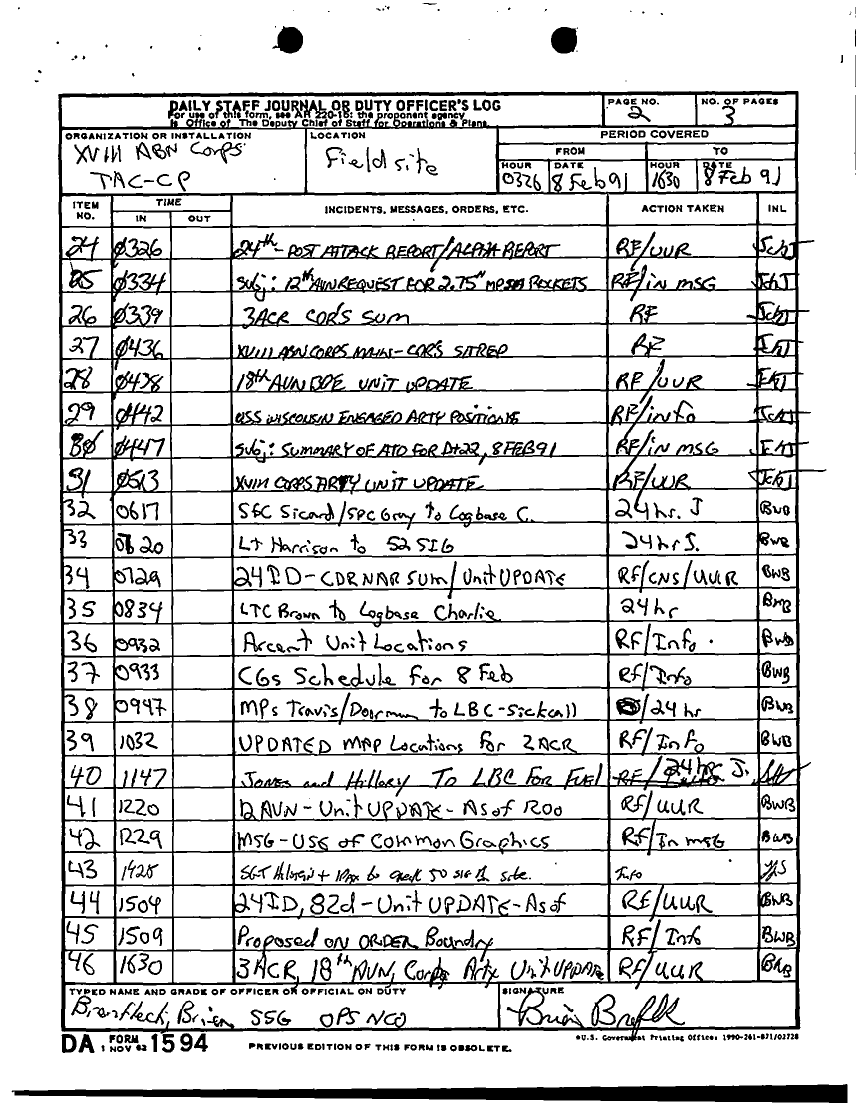 DAILY STAFF JOURNAL OR DUTY OFFICER'S LOG
For use of this form, see AR 220-15; the proponent agency
is Office of The Deputy Chief of Staff for Operations & Plans.
PAGE NO. 2
NO. OF PAGES 3
ORGANIZATION OR INSTALLATION
XVIII ABN Corps
TAC-CP
LOCATION
Field site
PERIOD COVERED
FROM TO
HOUR DATE HOUR DATE
0326 8 Feb 91 1630 8 Feb 91
ITEM NO. TIME IN OUT INCIDENTS, MESSAGES, ORDERS, ETC. ACTION TAKEN INL
24 0326 24th - POST ATTACK REPORT/ALPHA REPORT RF/UUR
25 0334 Subj: 12th AVN REQUEST FOR 2.75" ROCKETS RF/in MSG
26 0339 3ACR CDR'S SUM RF
27 0436 XVIII ABN CORPS MAIN - CDR'S SITREP RF
28 0438 18th AVN BDE UNIT UPDATE RF/UUR
29 0442 USS WISCONSIN ENGAGED ARTY POSITIONS RF/info
30 0447 Subj: SUMMARY OF ATO FOR D+22, 8FEB91 RF/in MSG
31 0513 XVIII CORPS ARTY UNIT UPDATE RF/UUR
32 0617 SFC Sicard/SPC Gray to Logbase C. 24 hr. J BWB
33 0620 LT Harrison to 52 SIG 24 hr J. BWB
34 0729 24 ID - CDR NAR SUM/Unit UPDATE RF/CNS/UUR BWB
35 0834 LTC Brown to Logbase Charlie 24 hr BWB
36 0932 Arcent Unit Locations RF/Info. BWB
37 0933 CGs Schedule for 8 Feb Rf/Info BWB
38 0947 MPs Travis/ to LBC - Sickcall /24 hr BWB
39 1032 UPDATED MAP Locations for 2ACR RF/Info BWB
40 1147 JONES and Hillory TO LBC FOR FUEL RF/ 24 hr J.
41 1220 12 AVN - Unit UPDATE - As of 1200 Rf/UUR BWB
42 1229 MSG - USE of Common Graphics Rf/In msg BWB
43 1425 SGT + to 50 site. Info
44 1504 24ID, 82d - Unit UPDATE - As of RF/UUR BWB
45 1509 Proposed ON ORDER Boundry RF/Info BWB
46 1630 3 ACR, 18th AVN, Corps Arty Unit UPDATE RF/UUR BWB
TYPED NAME AND GRADE OF OFFICER OR OFFICIAL ON DUTY
Brian SSG OPS NCO
SIGNATURE
Brian
DA FORM 1 NOV 62 1594
PREVIOUS EDITION OF THIS FORM IS OBSOLETE.
*U.S. Government Printing Office: 1990-261-871/02728